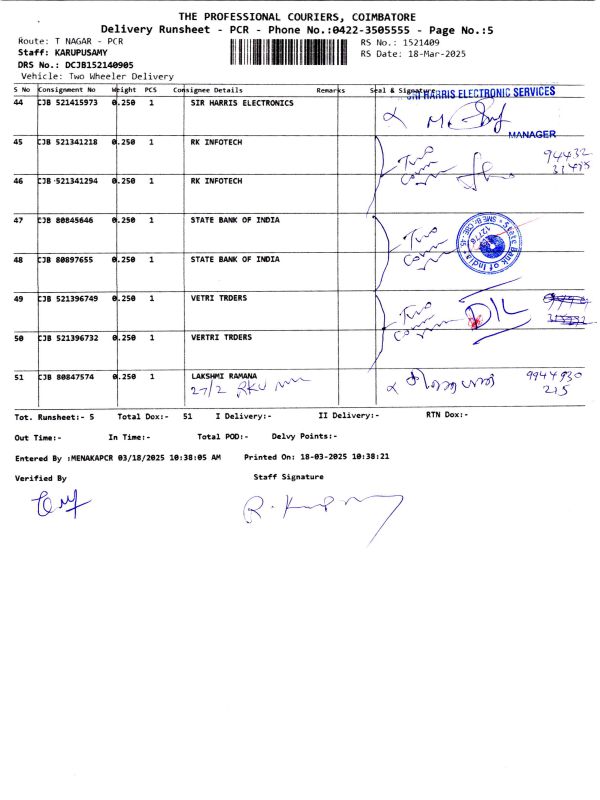 THE PROFESSIONAL COURIERS, COIMBATORE
Delivery Runsheet - PCR - Phone No.:0422-3505555 - Page No.:5
Route: T NAGAR - PCR
RS No.: 1521409
Staff: KARUPUSAMY
RS Date: 18-Mar-2025
DRS No.: DCJB152140905
Vehicle: Two Wheeler Delivery
S No Consignment No Weight PCS Consignee Details Remarks Seal & Signature
SRI HARRIS ELECTRONIC SERVICES
44 CJB 521415973 0.250 1 SIR HARRIS ELECTRONICS
MANAGER
45 CJB 521341218 0.250 1 RK INFOTECH
Two
46 CJB 521341294 0.250 1 RK INFOTECH
47 CJB 80845646 0.250 1 STATE BANK OF INDIA
Two
State Bank of India
48 CJB 80897655 0.250 1 STATE BANK OF INDIA
49 CJB 521396749 0.250 1 VETRI TRDERS
Two
50 CJB 521396732 0.250 1 VERTRI TRDERS
51 CJB 80847574 0.250 1 LAKSHMI RAMANA
27/2
9944930
215
Tot. Runsheet:- 5 Total Dox:- 51 I Delivery:- II Delivery:- RTN Dox:-
Out Time:- In Time:- Total POD:- Delvy Points:-
Entered By :MENAKAPCR 03/18/2025 10:38:05 AM Printed On: 18-03-2025 10:38:21
Verified By Staff Signature